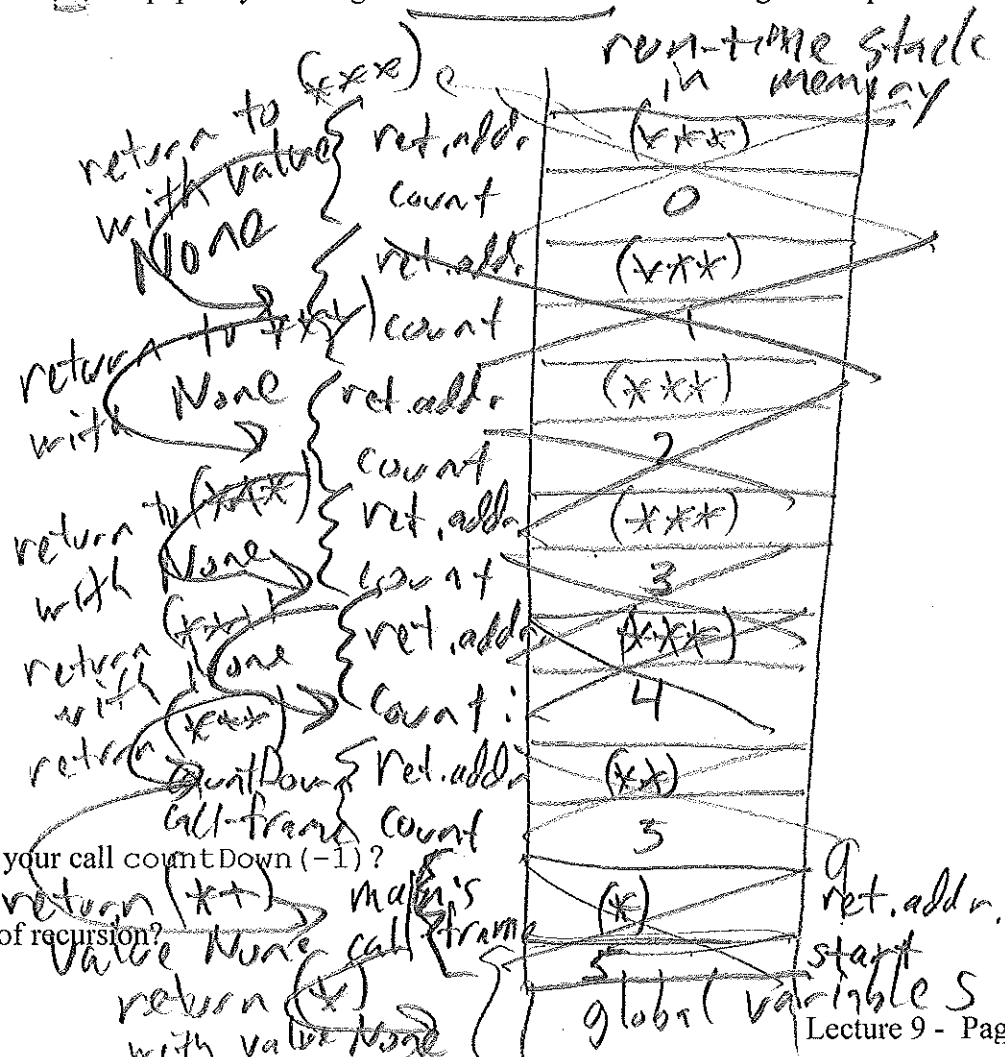 run-time stack
in memory
return to (***)
with value
None
ret.addr (***)
count 0
ret.addr. (***)
count 1
return to (***)
with None
ret.addr. (***)
count 2
return to (***)
with None
ret.addr. (***)
count 3
return (***)
with None
ret.addr. (***)
count: 4
return (***)
countDown
call-frame
ret.addr (**)
count 5
your call countDown(-1)?
return (**)
value None
main's
call frame
(*) ret.addr.
5 start
of recursion?
return (*)
with value None
global variables
Lecture 9 - Pag